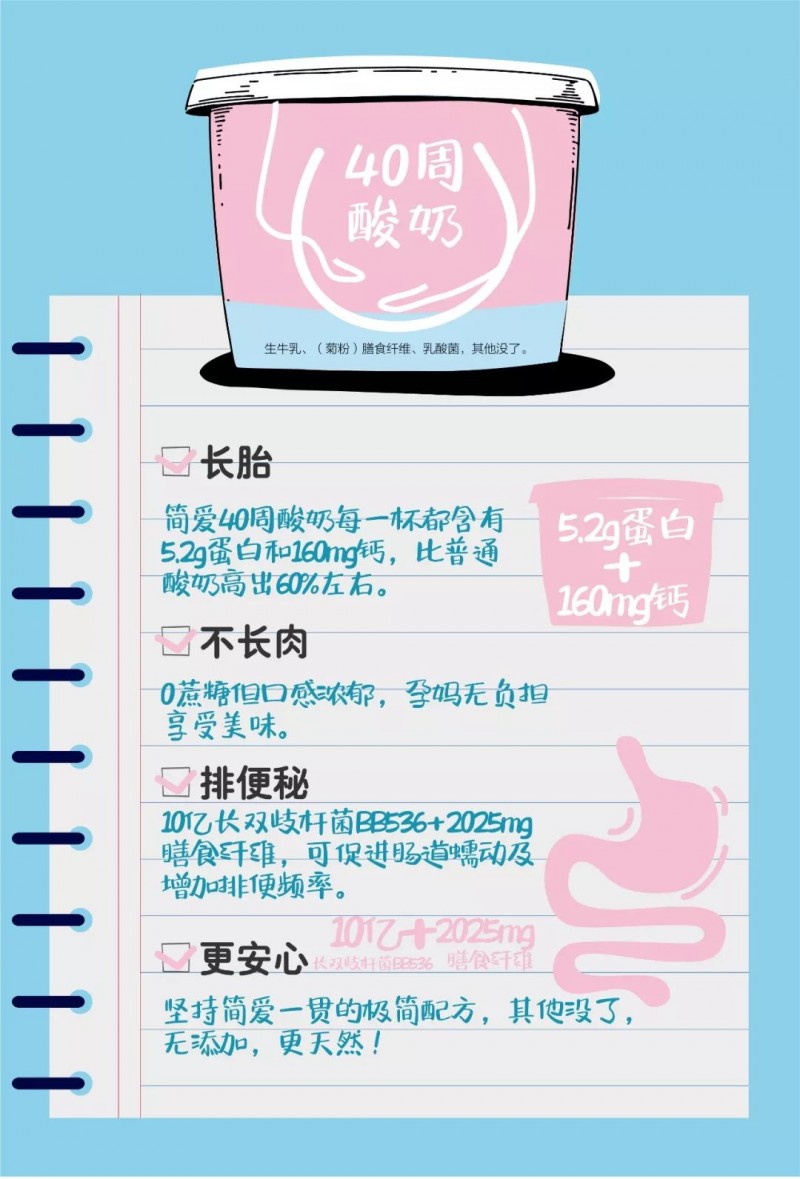 40周
酸奶
生牛乳、（菊粉）膳食纤维、乳酸菌，其他没了。
长胎
简爱40周酸奶每一杯都含有
5.2g蛋白和160mg钙，比普通
酸奶高出60%左右。
5.2g蛋白
+
160mg钙
不长肉
0蔗糖但口感浓郁，孕妈无负担
享受美味。
排便秘
10亿长双歧杆菌BB536+2025mg
膳食纤维，可促进肠道蠕动及
增加排便频率。
10亿+2025mg
长双歧杆菌BB536 膳食纤维
更安心
坚持简爱一贯的极简配方，其他没了，
无添加，更天然！